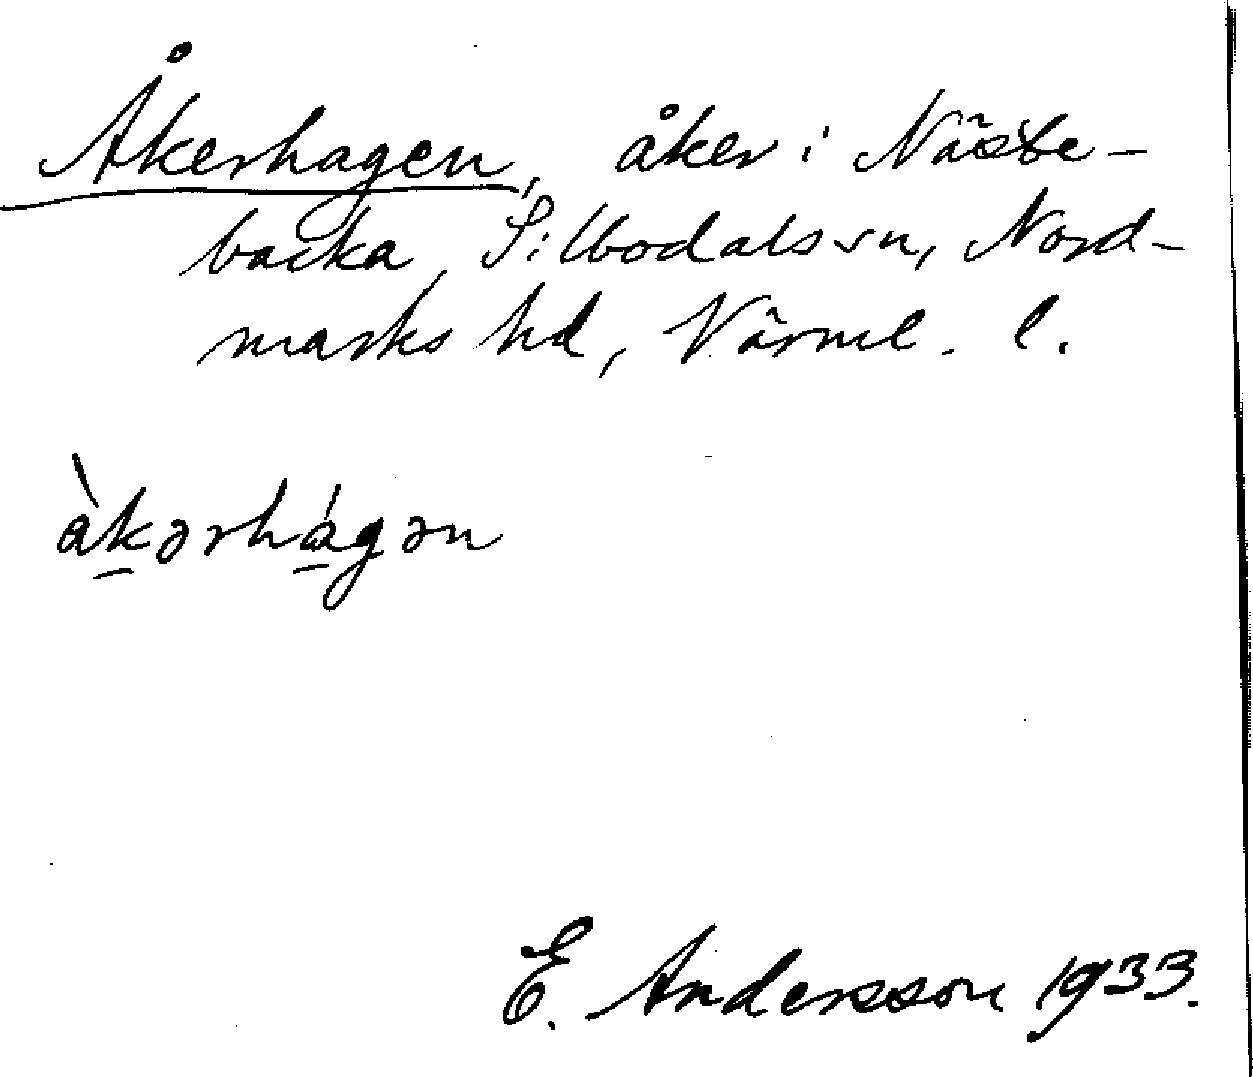 Åkerhagen, åker i Näste-
backa, Silbodals sn, Nord-
marks hd, Värml. l.
àk̠ərhá̠gən
E. Andersson 1933.